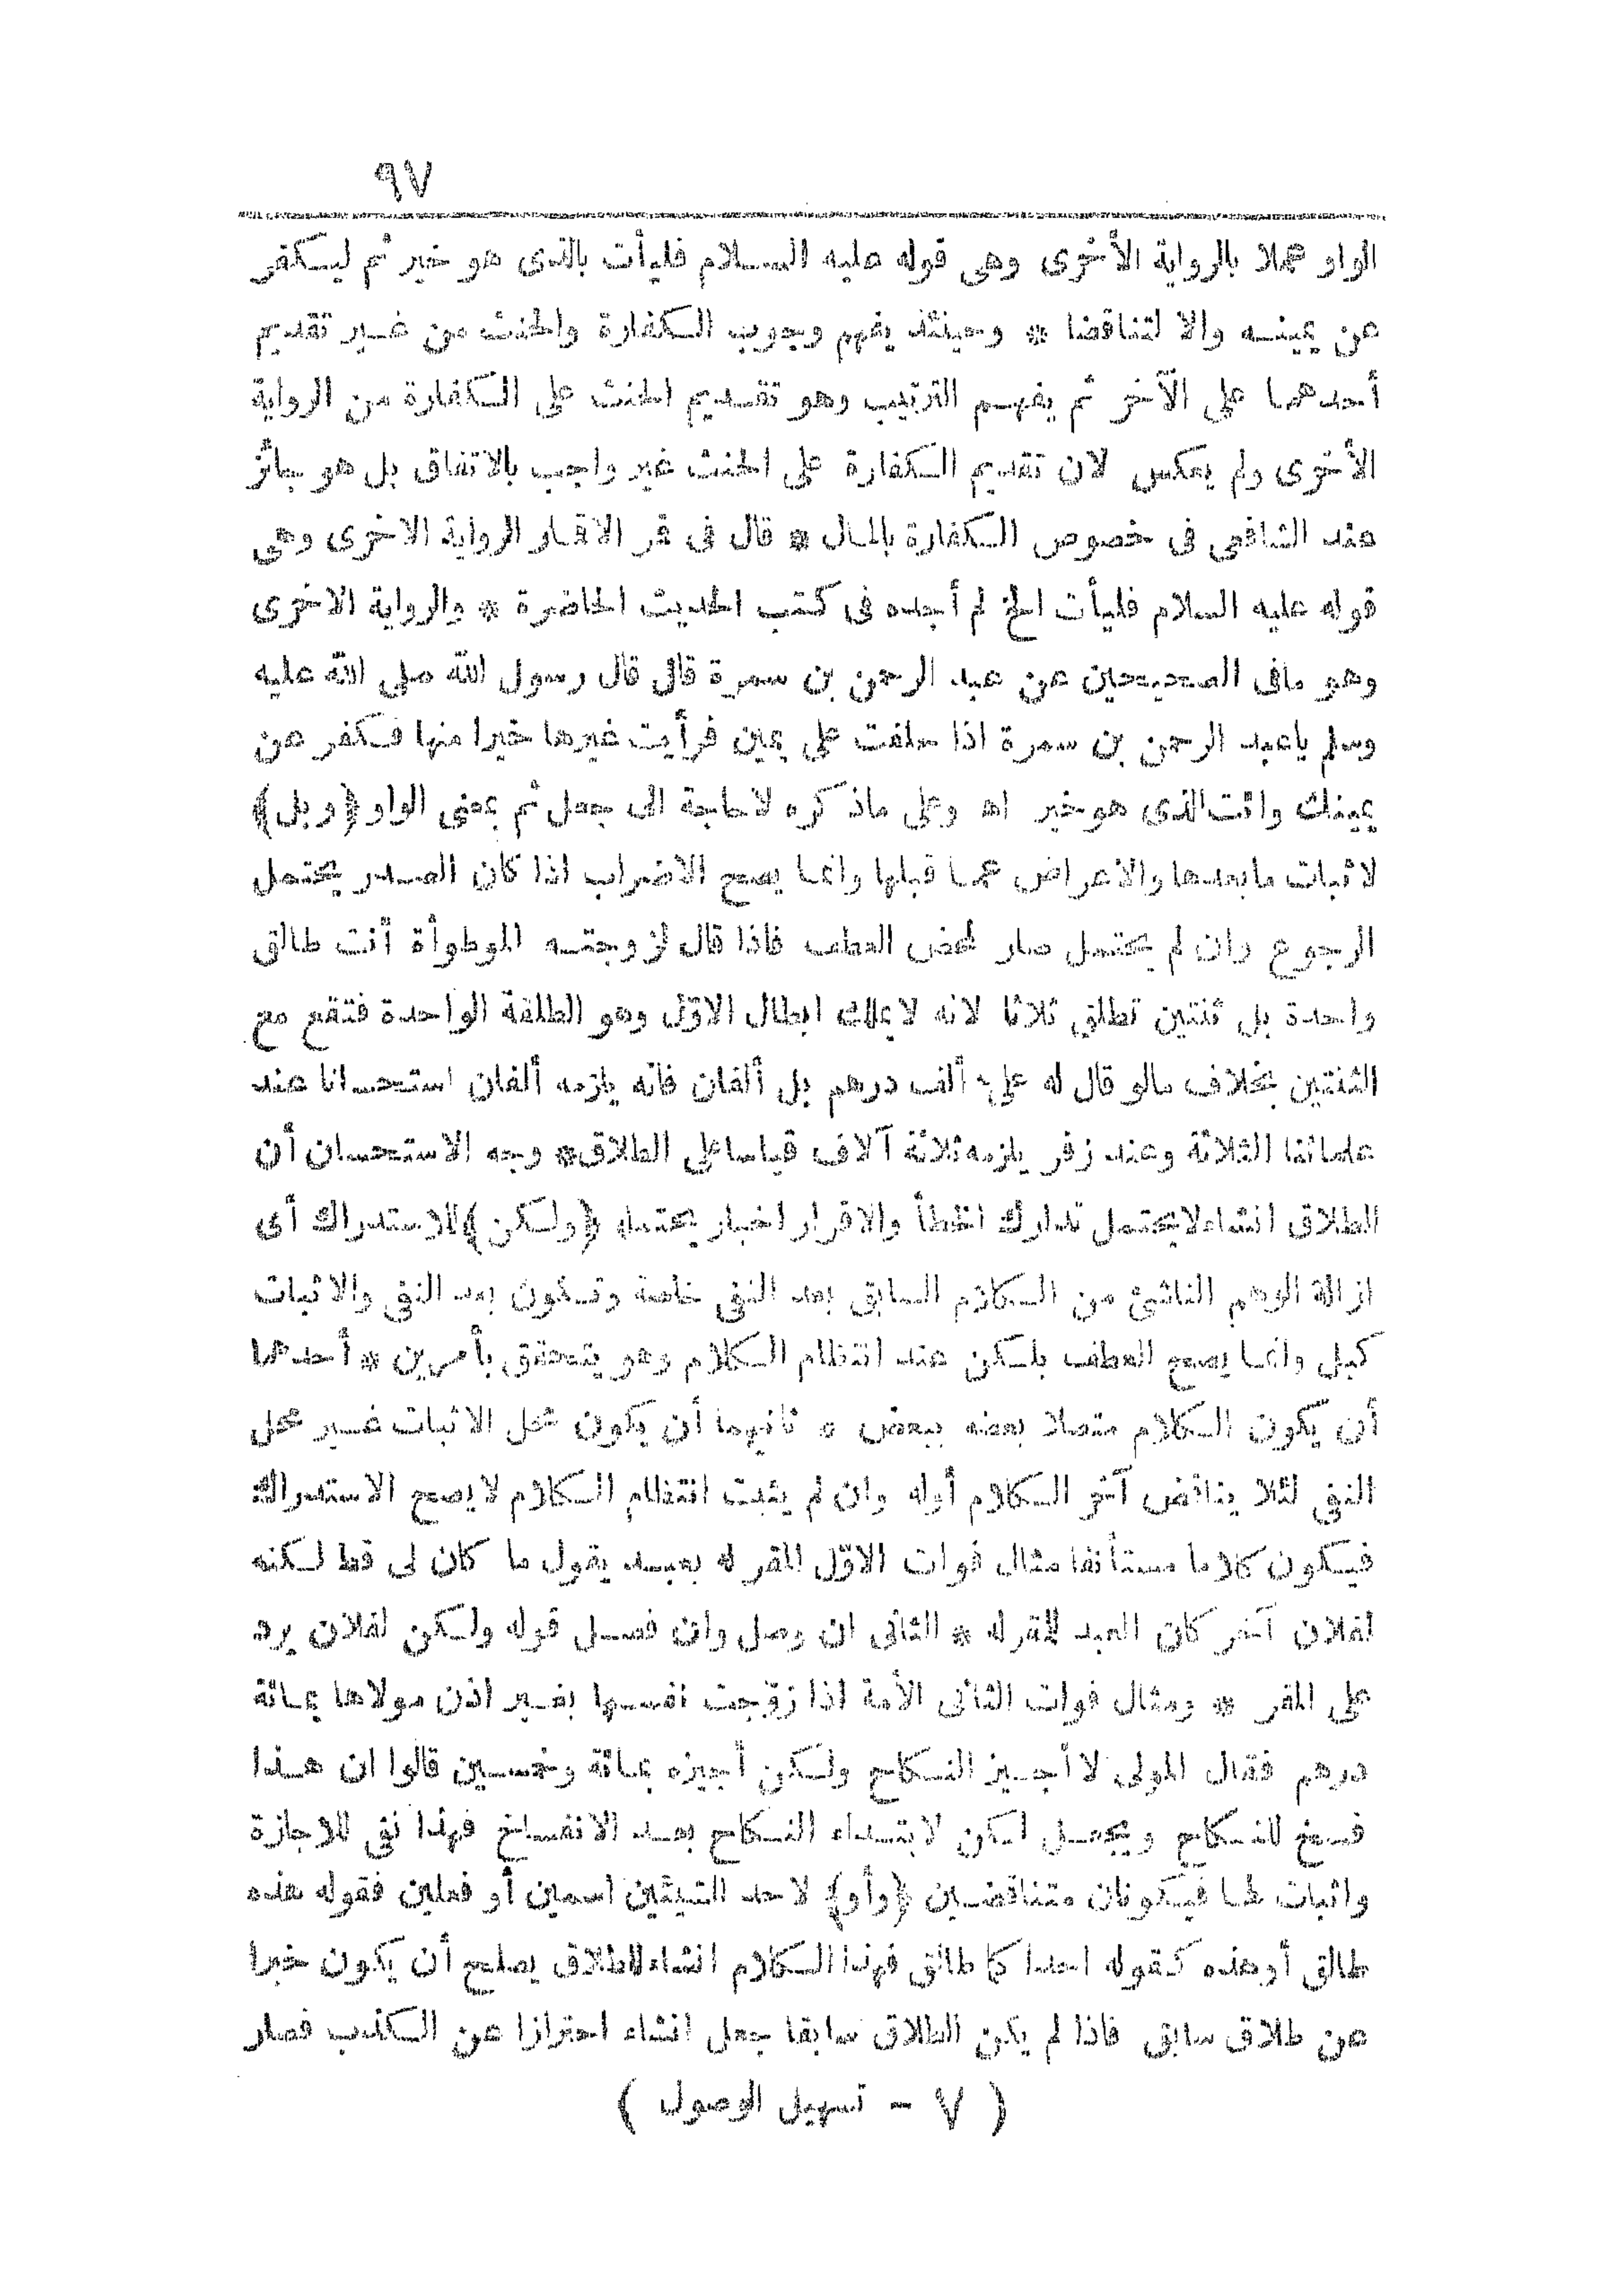 ٩٧
الواو عملا بالرواية الأخرى وهى قوله عليه السلام فليأت بالذى هو خير ثم ليكفر
عن يمينه والا لتناقضا * وحينئذ يفهم وجوب الكفارة والحنث من غير تقديم
أحدهما على الآخر ثم يفهم الترتيب وهو تقديم الحنث على الكفارة من الرواية
الأخرى ولم يعكس لان تقديم الكفارة على الحنث غير واجب بالاتفاق بل هو جائز
عند الشافعى فى خصوص الكفارة بالمال * قال فى قر الاقار الرواية الاخرى وهى
قوله عليه السلام فليأت الخ لم أجده فى كتب الحديث الحاضرة * والرواية الاخرى
وهو مافى الصحيحين عن عبد الرحمن بن سمرة قال قال رسول الله صلى الله عليه
وسلم ياعبد الرحمن بن سمرة اذا حلفت على يمين فرأيت غيرها خيرا منها فكفر عن
يمينك وائت الذى هو خير اه وعلى ماذكره لاحاجة الى جعل ثم بمعنى الواو ﴿وبل﴾
لاثبات مابعدها والاعراض عما قبلها وانما يصح الاضراب اذا كان الصدر يحتمل
الرجوع وان لم يحتمل صار لمحض العطف فاذا قال لزوجته الموطوأة أنت طالق
واحدة بل ثنتين تطلق ثلاثا لانه لايملك ابطال الاوّل وهو الطلقة الواحدة فتقع مع
الثنتين بخلاف مالو قال له علىّ ألف درهم بل ألفان فانه يلزمه ألفان استحسانا عند
علمائنا الثلاثة وعند زفر يلزمه ثلاثة آلاف قياسا على الطلاق * وجه الاستحسان أن
الطلاق انشاء لايحتمل تدارك الخطأ والاقرار اخبار يحتمله ﴿ولكن﴾ للاستدراك أى
ازالة الوهم الناشئ من الكلام السابق بعد النفى خاصة وتكون بعد النفى والاثبات
كبل وانما يصح العطف بلكن عند انتظام الكلام وهو يتحقق بأمرين * أحدهما
أن يكون الكلام متصلا بعضه ببعض * ثانيهما أن يكون محل الاثبات غير محل
النفى لئلا يناقض آخر الكلام أوله وان لم يثبت انتظام الكلام لايصح الاستدراك
فيكون كلاما مستأنفا مثال فوات الاوّل المقر له بعبد يقول ما كان لى قط لكنه
لفلان آخر كان العبد للمقر له * الثانى ان وصل وان فصل قوله ولكن لفلان يرد
على المقر * ومثال فوات الثانى الأمة اذا زوّجت نفسها بغير اذن مولاها بمائة
درهم فقال المولى لا أجيز النكاح ولكن أجيزه بمائة وخمسين قالوا ان هذا
فسخ للنكاح ويجعل لكن لابتداء النكاح بعد الانفساخ فهذا نفى للاجازة
واثبات لها فيكونان متناقضين ﴿وأو﴾ لاحد الشيئين اسمين أو فعلين فقوله هذه
طالق أو هذه كقوله احداكما طالق فهذا الكلام انشاء للطلاق يصلح أن يكون خبرا
عن طلاق سابق فاذا لم يكن الطلاق سابقا جعل انشاء احترازا عن الكذب فصار
( ٧ - تسهيل الوصول )